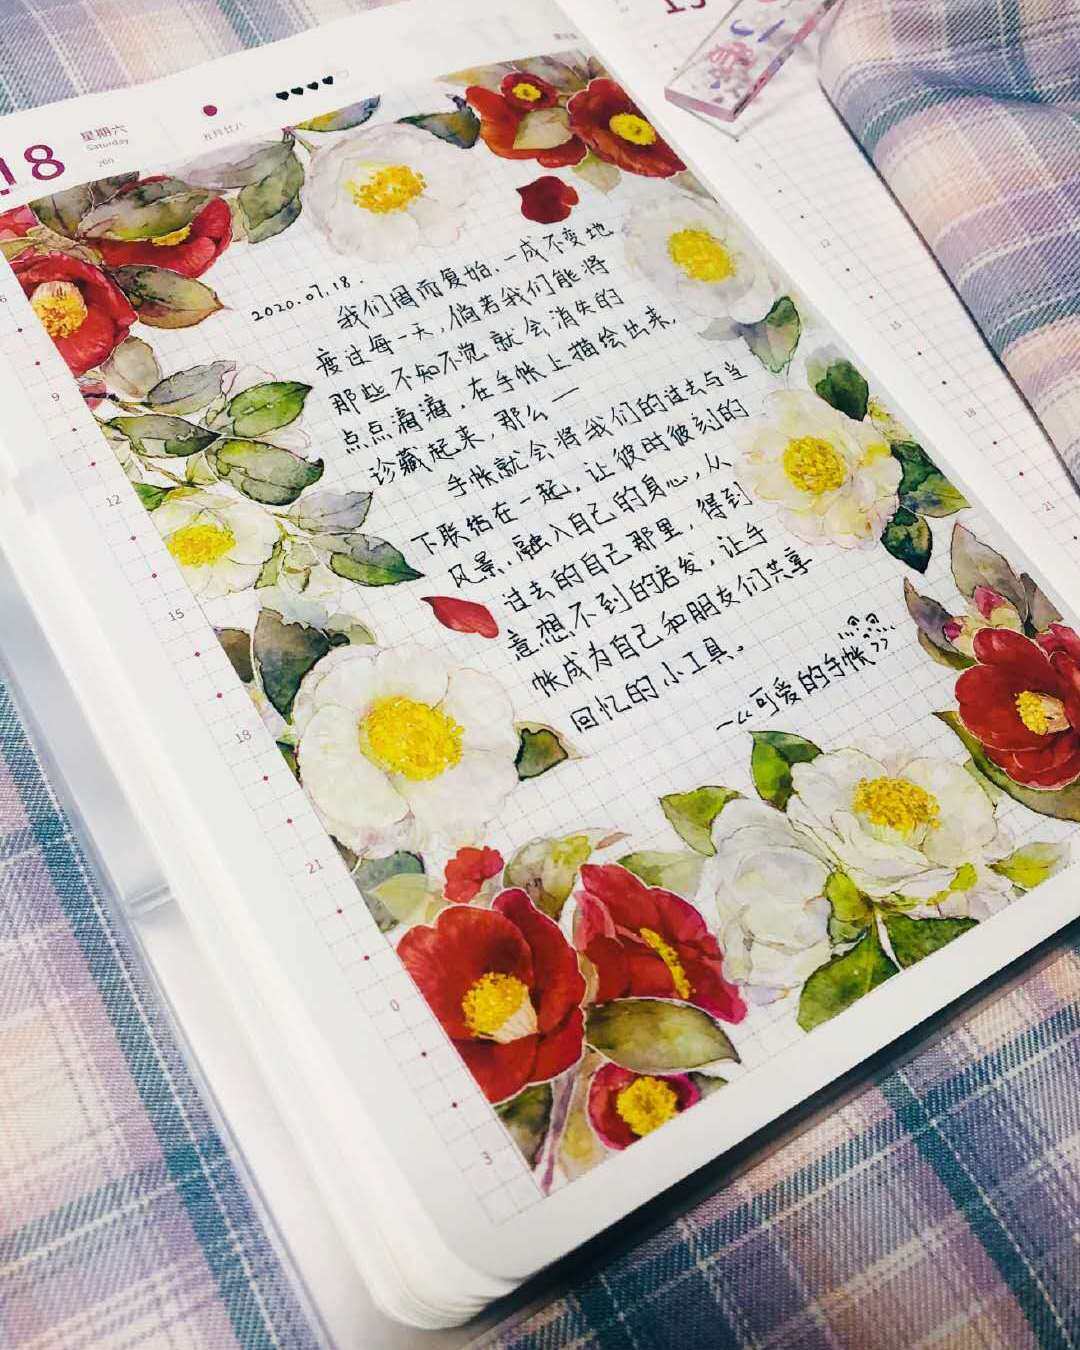 18
星期六
Saturday
五月廿八
2020.07.18.
我们周而复始、一成不变地
度过每一天，倘若我们能将
那些不知不觉就会消失的
点点滴滴，在手帐上描绘出来，
珍藏起来，那么——
手帐就会将我们的过去与当
下联结在一起，让彼时彼刻的
风景，融入自己的身心，从
过去的自己那里，得到
意想不到的启发，让手
帐成为自己和朋友们共享
回忆的小工具。
—《可爱的手帐》
9
12
15
18
21
0
3
9
12
15
18
21